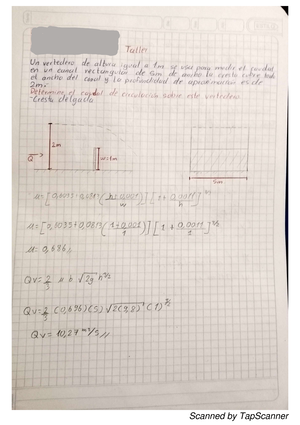 Taller
Un vertedero de altura igual a 1m se usa para medir el caudal
en un canal rectangular de 5m de ancho la cresta cubre todo
el ancho del canal y la profundidad de aproximación es de
2m.
Determine el caudal de circulación sobre este vertedero
Cresta delgada
2m
Q
w=1m
5m
h
w
h
μ= 0,6962
Qv= 2/3 μ b √2g h^3/2
Qv= 2/3 (0,696)(5) √2(9,8) (1)^3/2
Qv= 10,27 m³/s //
Scanned by TapScanner